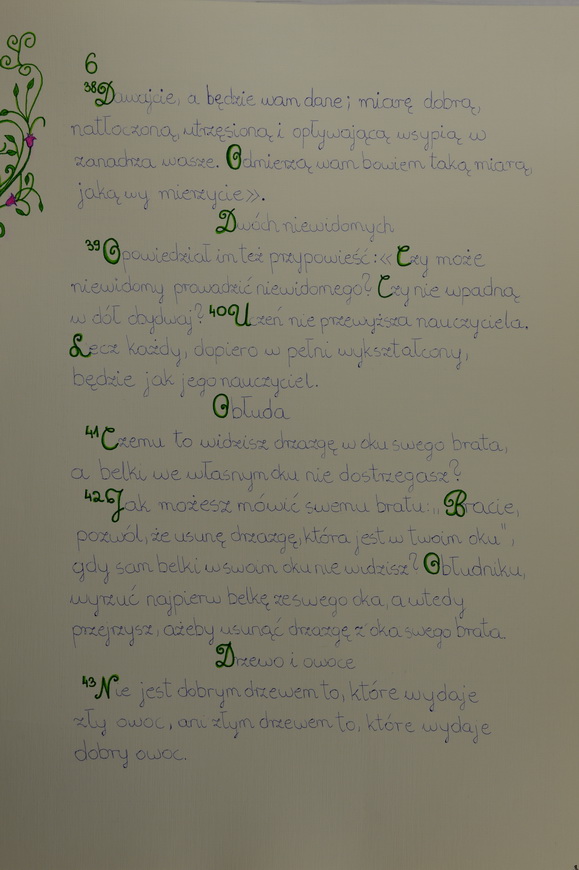 6
38 Dawajcie, a będzie wam dane; miarę dobrą,
natłoczoną, utrzęsioną i opływającą wsypią w
zanadrza wasze. Odmierzą wam bowiem taką miarą,
jaką wy mierzycie».
Dwóch niewidomych
39 Opowiedział im też przypowieść: «Czy może
niewidomy prowadzić niewidomego? Czy nie wpadną
w dół obydwaj? 40 Uczeń nie przewyższa nauczyciela.
Lecz każdy, dopiero w pełni wykształcony,
będzie jak jego nauczyciel.
Obłuda
41 Czemu to widzisz drzazgę w oku swego brata,
a belki we własnym oku nie dostrzegasz?
42 Jak możesz mówić swemu bratu: „Bracie,
pozwól, że usunę drzazgę, która jest w twoim oku",
gdy sam belki w swoim oku nie widzisz? Obłudniku,
wyrzuć najpierw belkę ze swego oka, a wtedy
przejrzysz, ażeby usunąć drzazgę z oka swego brata.
Drzewo i owoce
43 Nie jest dobrym drzewem to, które wydaje
zły owoc, ani złym drzewem to, które wydaje
dobry owoc.